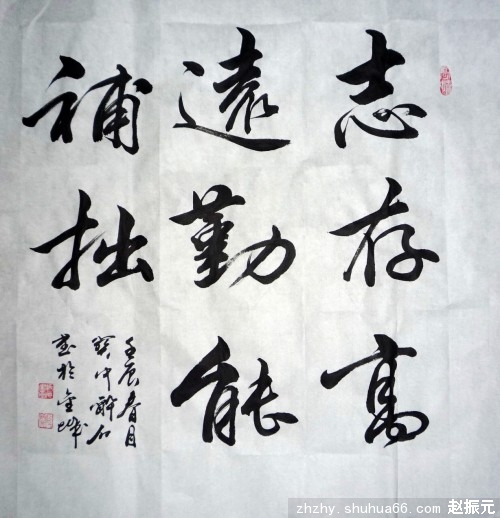 志存高
遠勤能
補拙
壬辰春月
寶中醉石
書於金城
zhzhy.shuhua66.com 赵振元